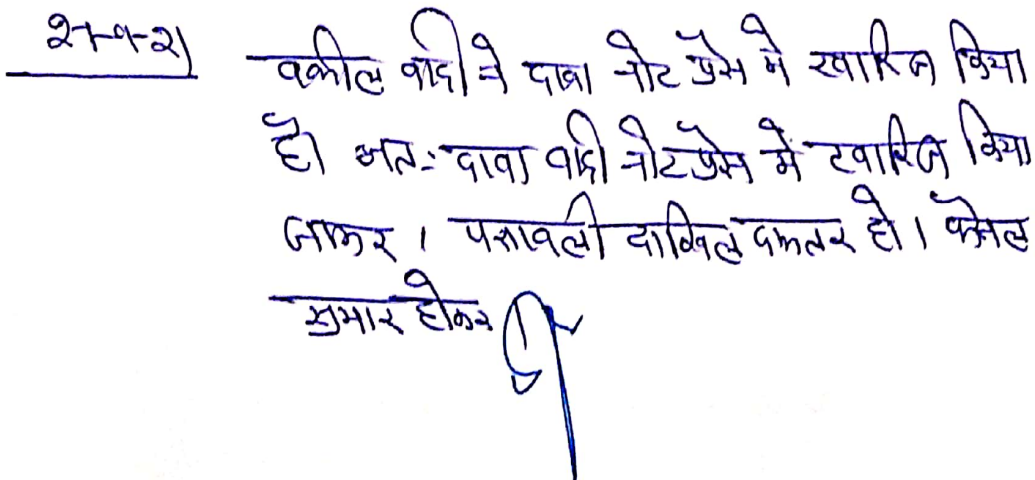 वकील वादी ने दावा नोट प्रेस मे खारिज किया
है। अतः दावा वादी नोट प्रेस में खारिज किया
जाकर। पत्रावली दाखिल दफ्तर हो। फैसल
शुमार होकर